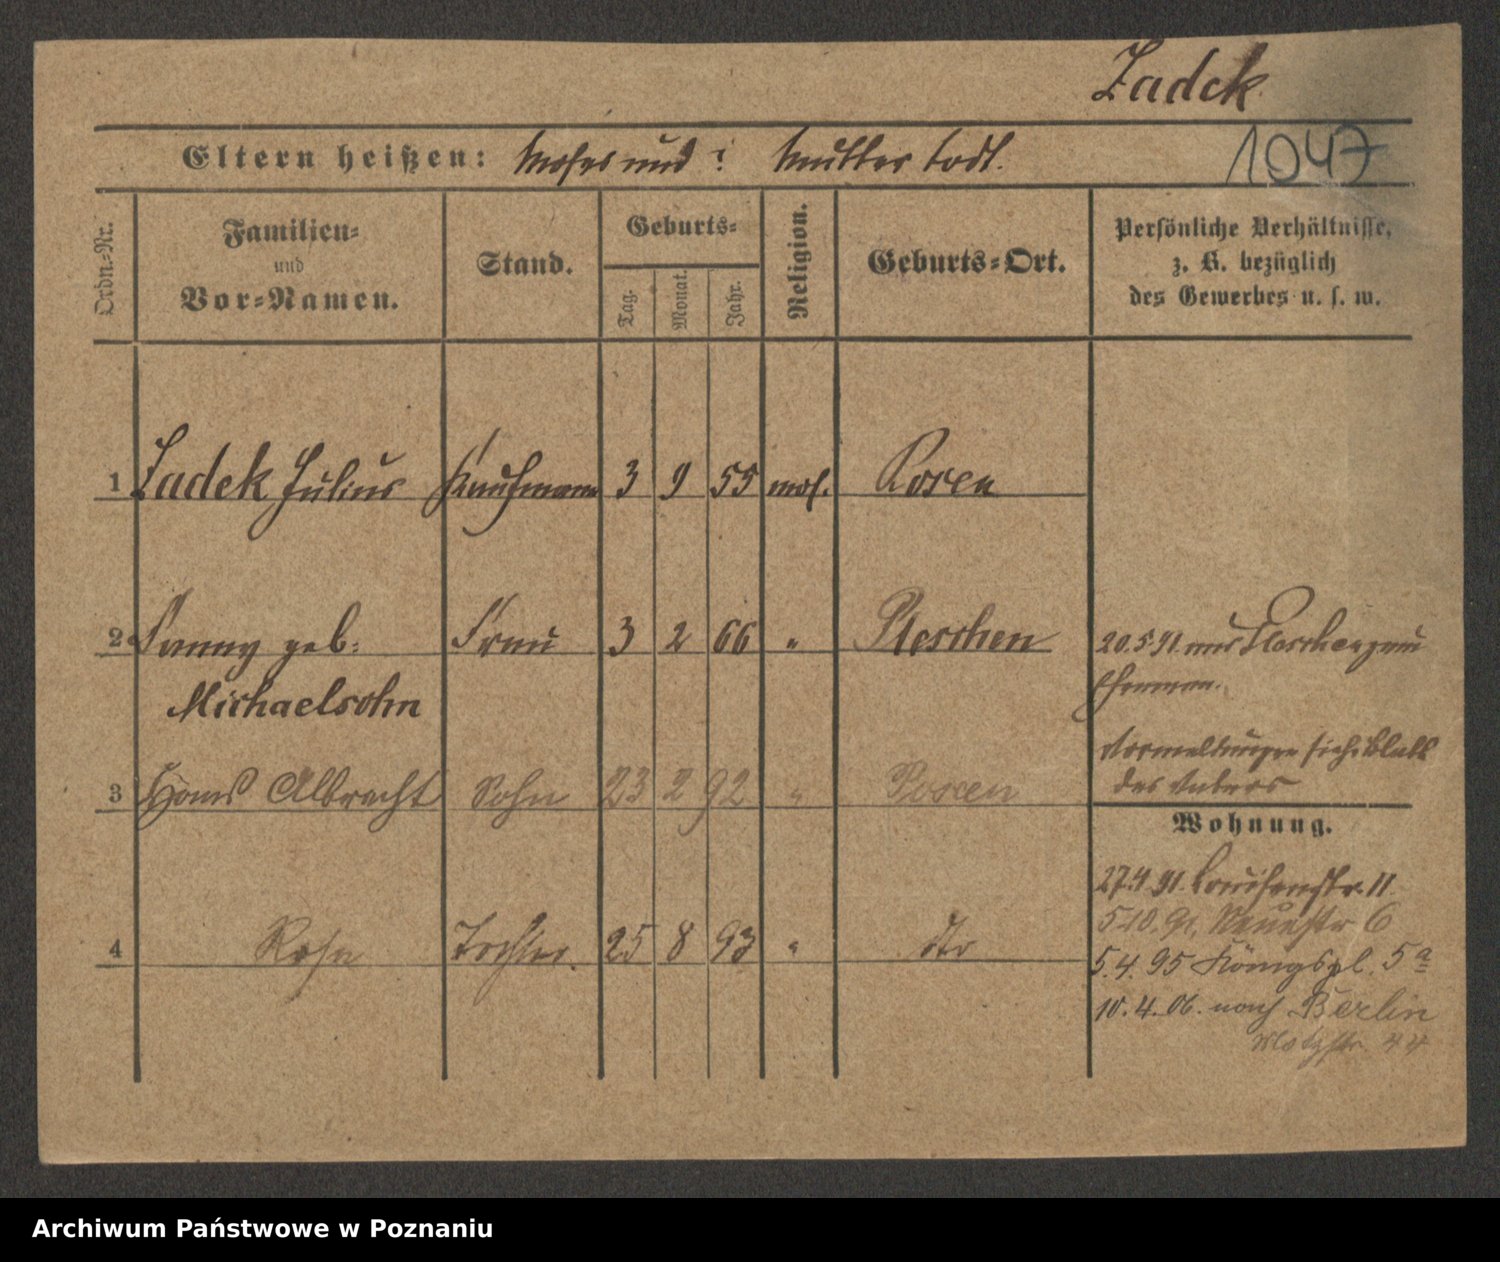 Zadek
1047
Eltern heißen: Moses und ? Mutter todt.
Ordn.-Nr.
Familien-
und
Vor-Namen.
Stand.
Geburts-
Tag.
Monat.
Jahr.
Religion.
Geburts-Ort.
Persönliche Verhältnisse,
z. B. bezüglich
des Gewerbes u. s. w.
1 Zadek Julius Kaufmann 3 9 55 mos. Posen
2 Fanny geb: Frau 3 2 66 " Pleschen
Michaelsohn
20.5.91 aus Pleschen zum
Ehemann.
Vormeldungen siehe Blatt
des Vaters
3 Hans Albrecht Sohn 23 2 92 " Posen
Wohnung.
27.4.91. Louisenstr. 11
5.10.91. Neuestr 6
4 Rosa Tochter. 25 8 93 " dto
5.4.95 Königspl. 5a
10.4.06. nach Berlin
Motzstr. 44
Archiwum Państwowe w Poznaniu